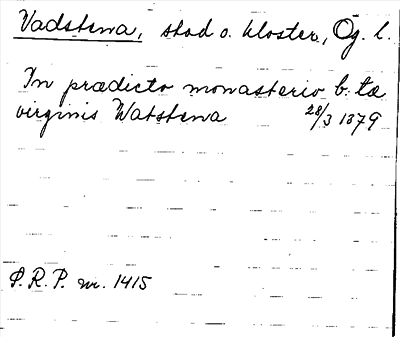 Vadstena, stad o. kloster, Ög. l.
In prædicto monasterio b. tæ
virginis Watstena 28/3 1379
S.R.P. nr. 1415